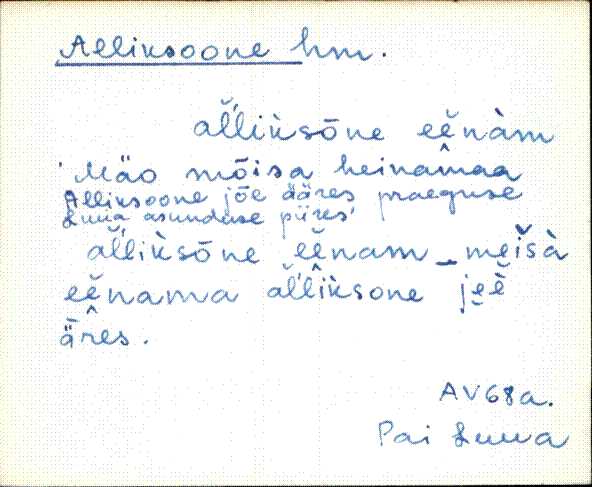 Alliksoone hm.
al̆'lik̀sōne eĕnàm
'Mäo mõisa heinamaa
Alliksoone jõe ääres praeguse
Luua asunduse piires'
al̆'lik̀sōne eĕnam _ meĭsà
eĕnama al̆'lik̀sone je̮ĕ̮
ä̂res.
AV68a.
Pai Luua